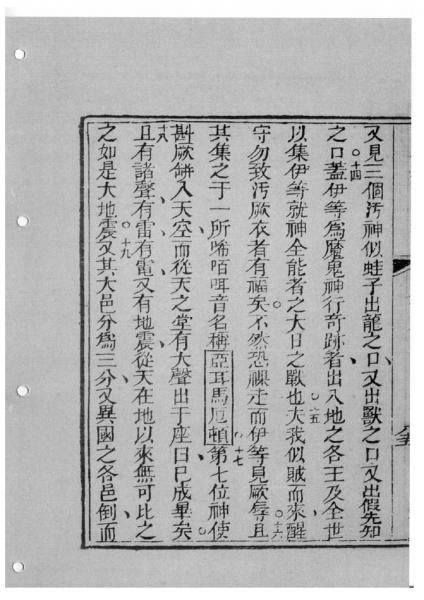 又見三個汚神似蛙子出龍之口又出獸之口又出假先知
之口十四蓋伊等為魔鬼神行奇跡者出入地之各王及全世
以集伊等就神全能者之大日之戰也十五夫我似賊而來醒
守勿致汚厥衣者有福矣不然恐裸走而伊等見厥辱十六且
其集之于一所唏陌咡音名稱亞耳馬厄頓十七第七位神使
斟厥缾入天空而從天之堂有大聲出于座曰已成畢矣
十八且有諸聲有雷有電又有地震從天在地以來無可比之
之如是大地震十九又其大邑分為三分又異國之各邑倒而